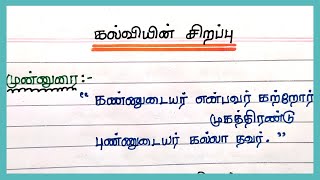 கல்வியின் சிறப்பு
முன்னுரை:-
“ கண்ணுடையர் என்பவர் கற்றோர்
முகத்திரண்டு
புண்ணுடையர் கல்லா தவர். ”